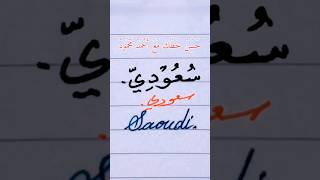 حَسِّن خطك مع أَحْمَدْ مَحْمُودْ
سُعُوْدِيّ.
سعودي.
Saoudi.